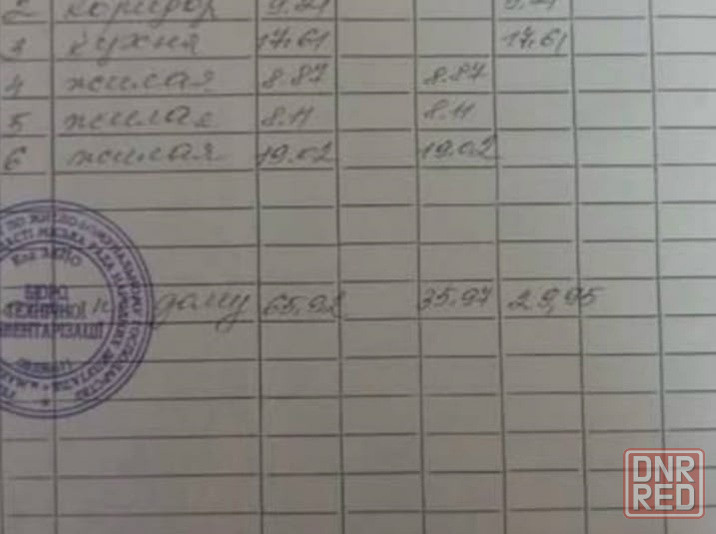 2 коридор
3 кухня 17.61 17.61
4 жилая 8.84 8.84
5 жилая 8.11 8.11
6 жилая 19.02 19.02
дому 65,92 35.97 29,95
БЮРО
ТЕХНІЧНОЇ
ІНВЕНТАРИЗАЦІЇ
DNR
RED